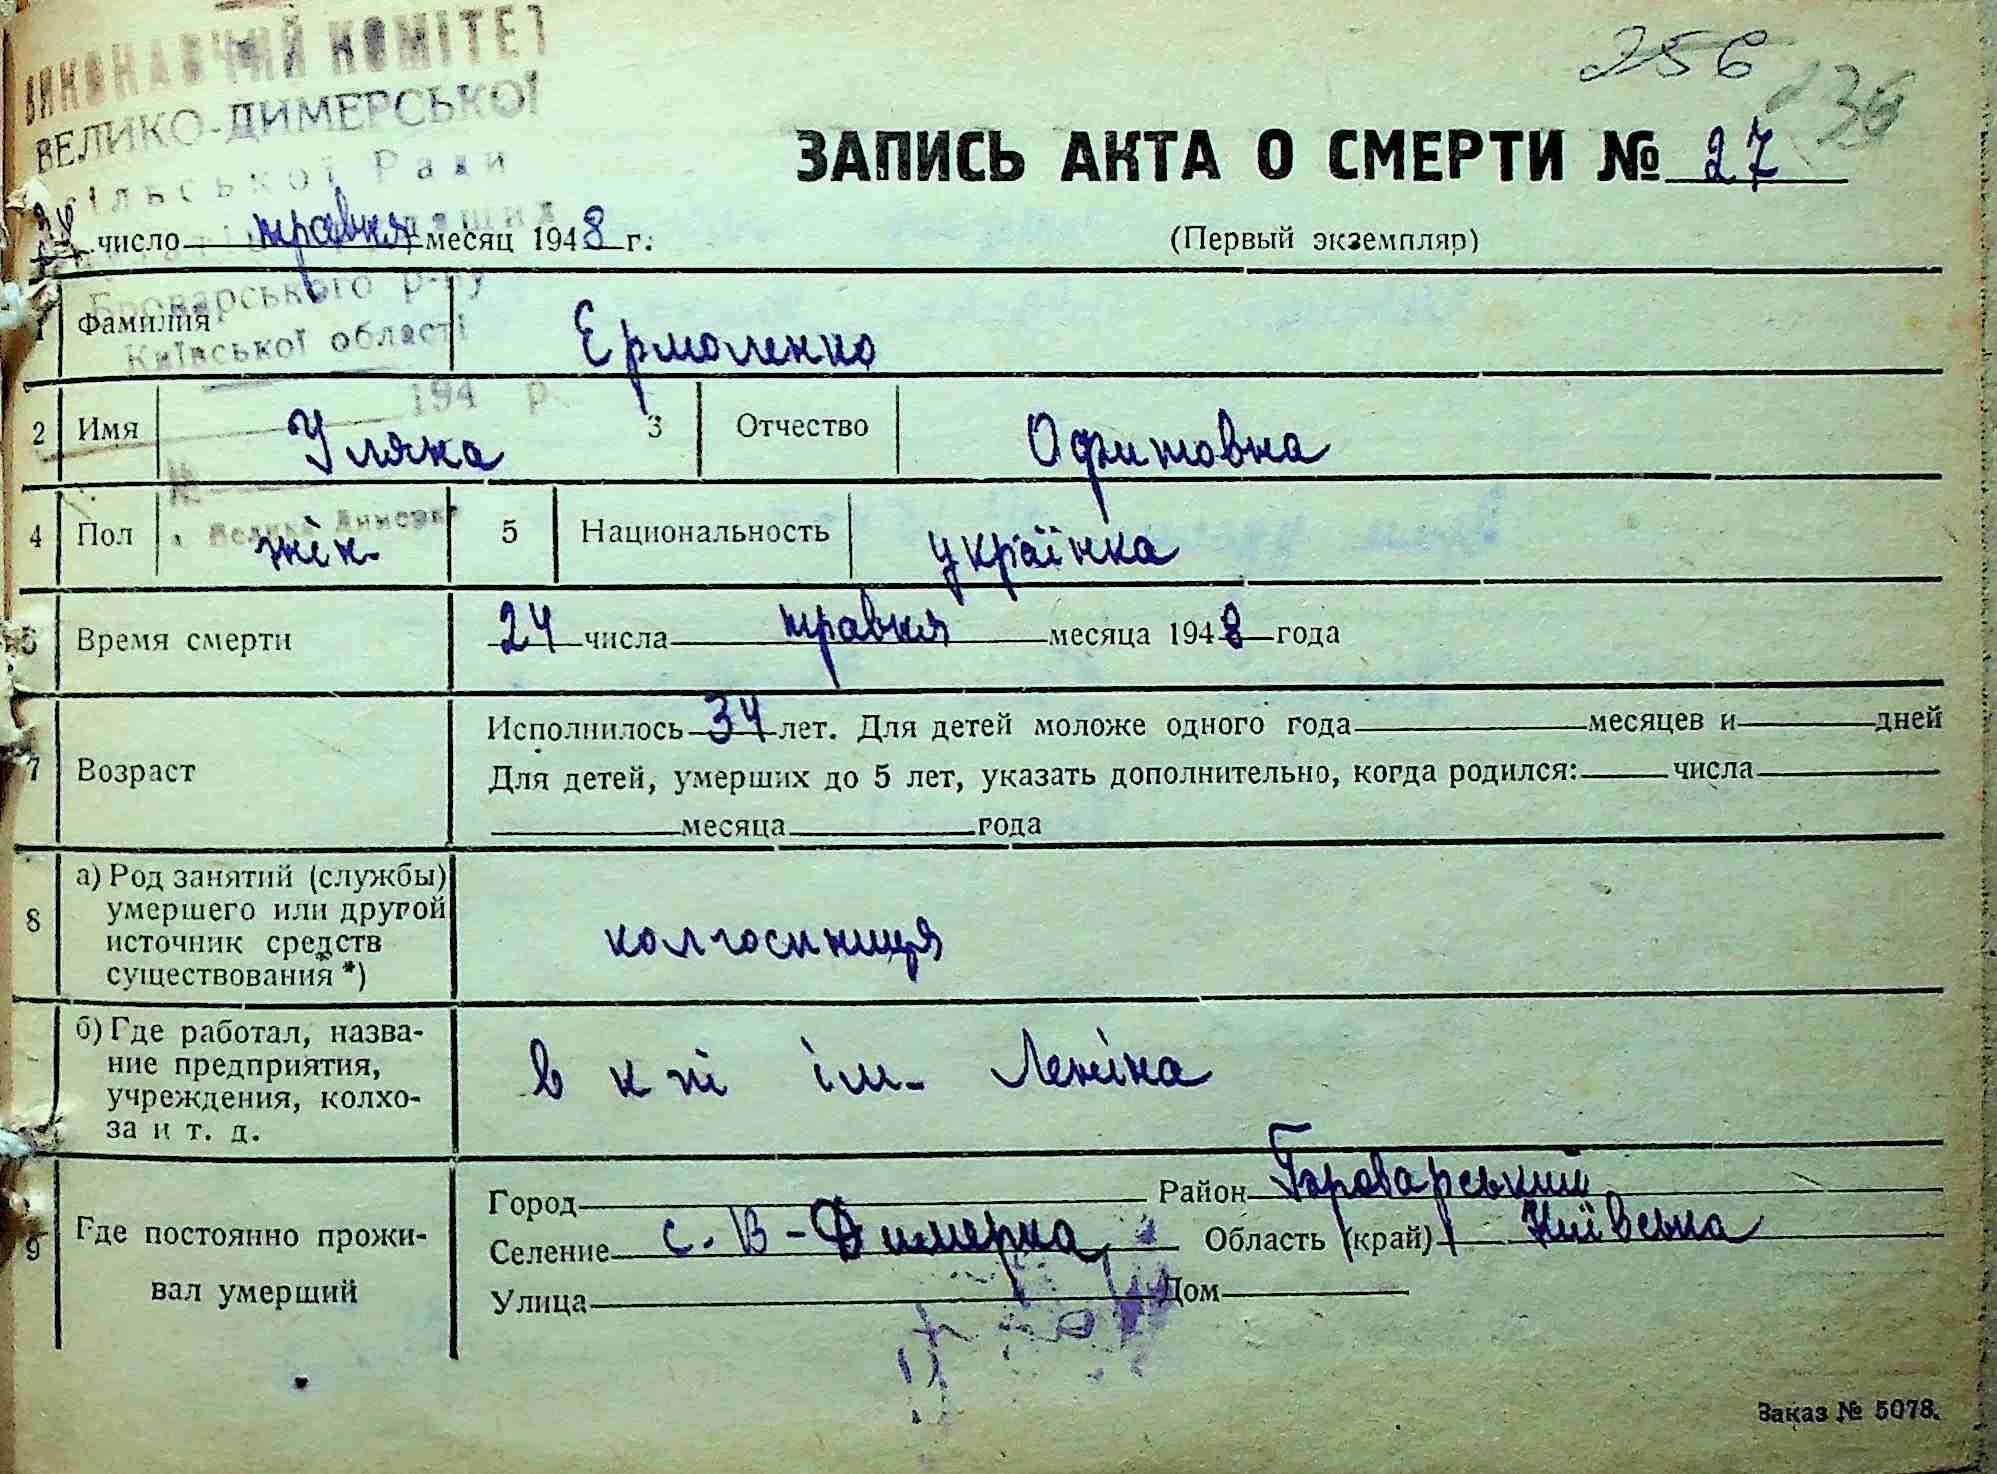 ВИКОНАВЧИЙ КОМІТЕТ
ВЕЛИКО-ДИМЕРСЬКОЇ
сільської Ради
Броварського р-ну
Київської області
194 р.
№
256
136
ЗАПИСЬ АКТА О СМЕРТИ № 27
число травня месяц 1948 г.
(Первый экземпляр)
1 Фамилия Ермоленко
2 Имя Уляна 3 Отчество
4 Пол жін. 5 Национальность українка
6 Время смерти 24 числа травня месяца 1948 года
7 Возраст
Исполнилось 34 лет. Для детей моложе одного года месяцев и дней
Для детей, умерших до 5 лет, указать дополнительно, когда родился: числа
месяца года
8 а) Род занятий (службы)
умершего или другой
источник средств
существования *)
колгоспниця
б) Где работал, назва-
ние предприятия,
учреждения, колхо-
за и т. д.
в к-пі ім. Леніна
9 Где постоянно прожи-
вал умерший
Город Район Броварський
Селение с. В-Димерка Область (край) Київська
Улица Дом
Заказ № 5078.